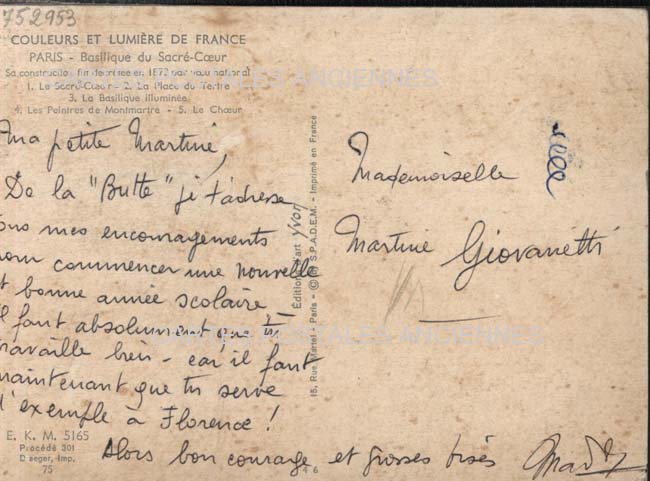 752953
COULEURS ET LUMIÈRE DE FRANCE
PARIS - Basilique du Sacré-Cœur
Sa construction fin décrisée en 1872 par vœu national
1. Le Sacré-Cœur - 2. La Place du Tertre
3. La Basilique illuminée
4. Les Peintres de Montmartre - 5. Le Chœur
CARTES POSTALES ANCIENNES
Ma petite Martine,
De la "Butte" je t'adresse
ous mes encouragements
our commencer une nouvelle
t bonne année scolaire -
il faut absolument que tu
travaille bien - car il faut
maintenant que tu serve
d'exemple à Florence !
Alors bon courage et grosses bises
E. K. M. 5165
Procédé 301
Draeger, Imp.
75
46
Editions d'art YVON
15, Rue Martel - Paris - © S.P.A.D.E.M. - Imprimé en France
Mademoiselle
Martine Giovanetti
CARTES POSTALES ANCIENNES